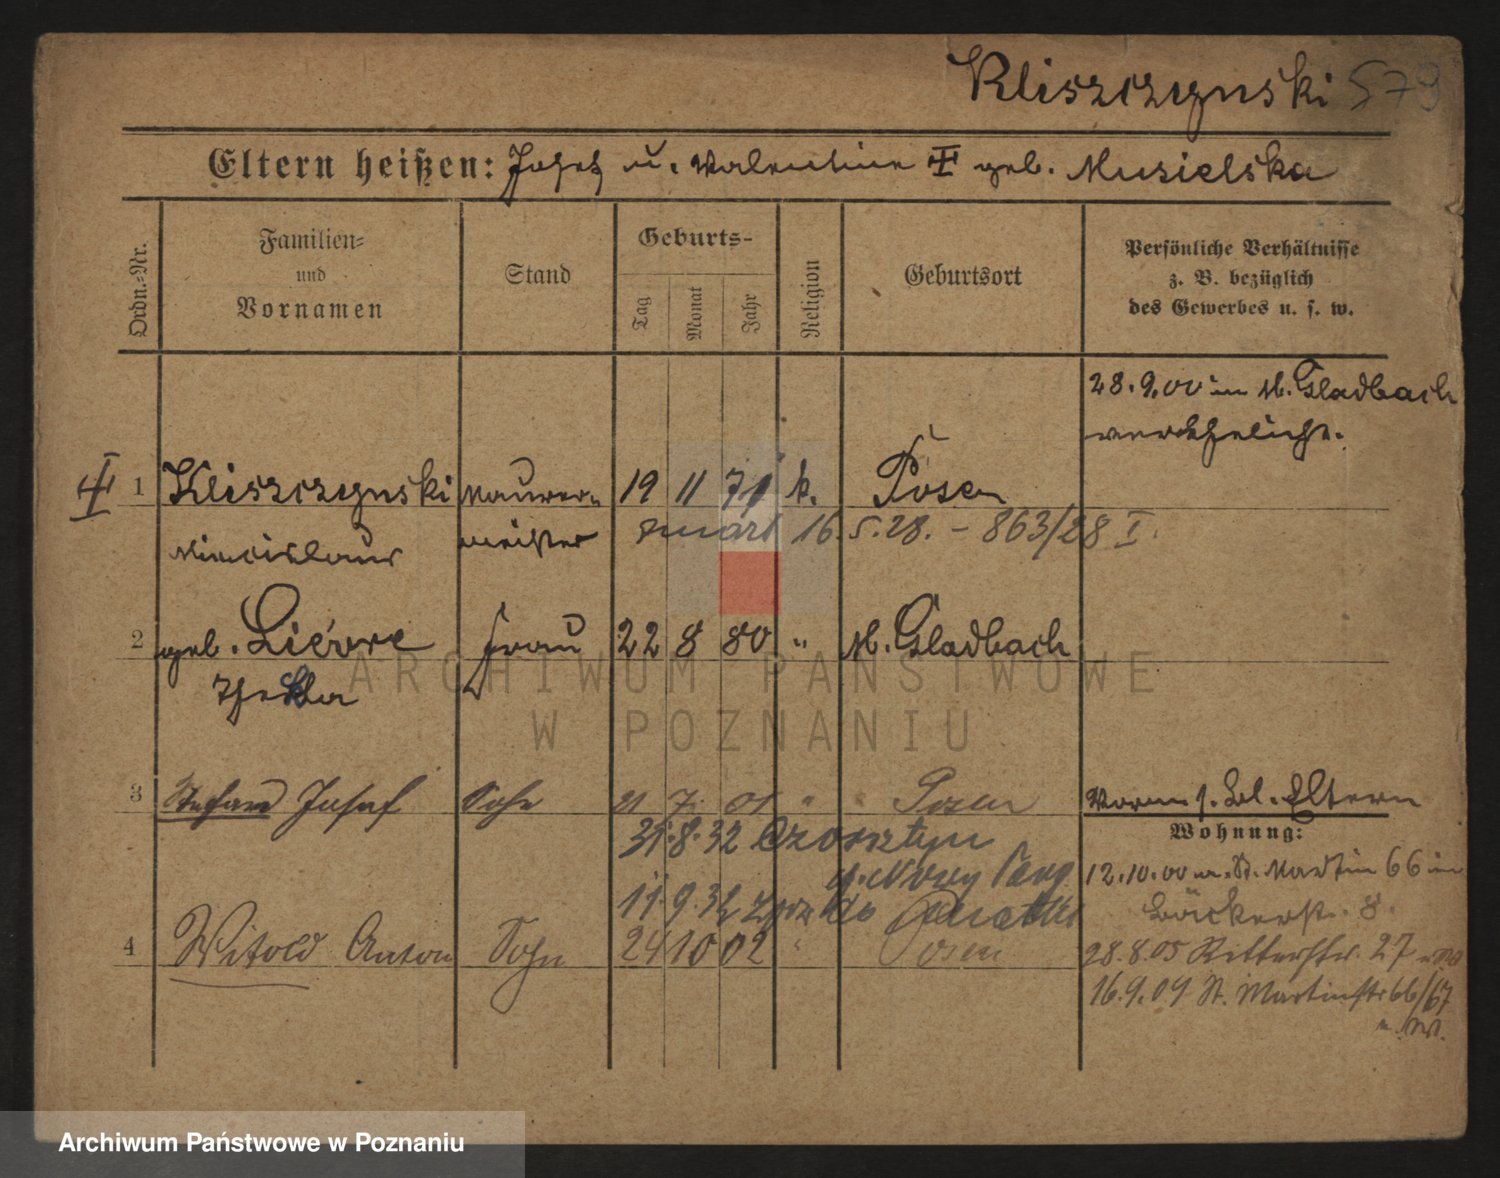 Kliszczynski 579
Eltern heißen: Josef u. Valentine geb. Musielska
Ordn.-Nr.
Familien- und Vornamen
Stand
Geburts-
Tag
Monat
Jahr
Religion
Geburtsort
Persönliche Verhältnisse
z. B. bezüglich
des Gewerbes u. s. w.
28.9.00 in M. Gladbach
verehelicht.
1 Kliszczynski Maurer- 19 11 71 k. Posen
Miecislaus meister zmarł 16.5.28. - 863/28 I.
2 geb. Liévre Frau 22 8 80 " M. Gladbach
Thekla
ARCHIWUM PAŃSTWOWE
W POZNANIU
3 Stefan Josef Sohn 21 7 01 " " Posen
31.8.32 Czorsztyn
11.9.32
4 Witold Anton Sohn 24 10 02 " Posen
Eltern
Wohnung:
12.10.00 St. Martin 66
Bäckerstr. 8.
28.8.05 Ritterstr. 27
16.9.09 St. Martinstr 66/67
Archiwum Państwowe w Poznaniu